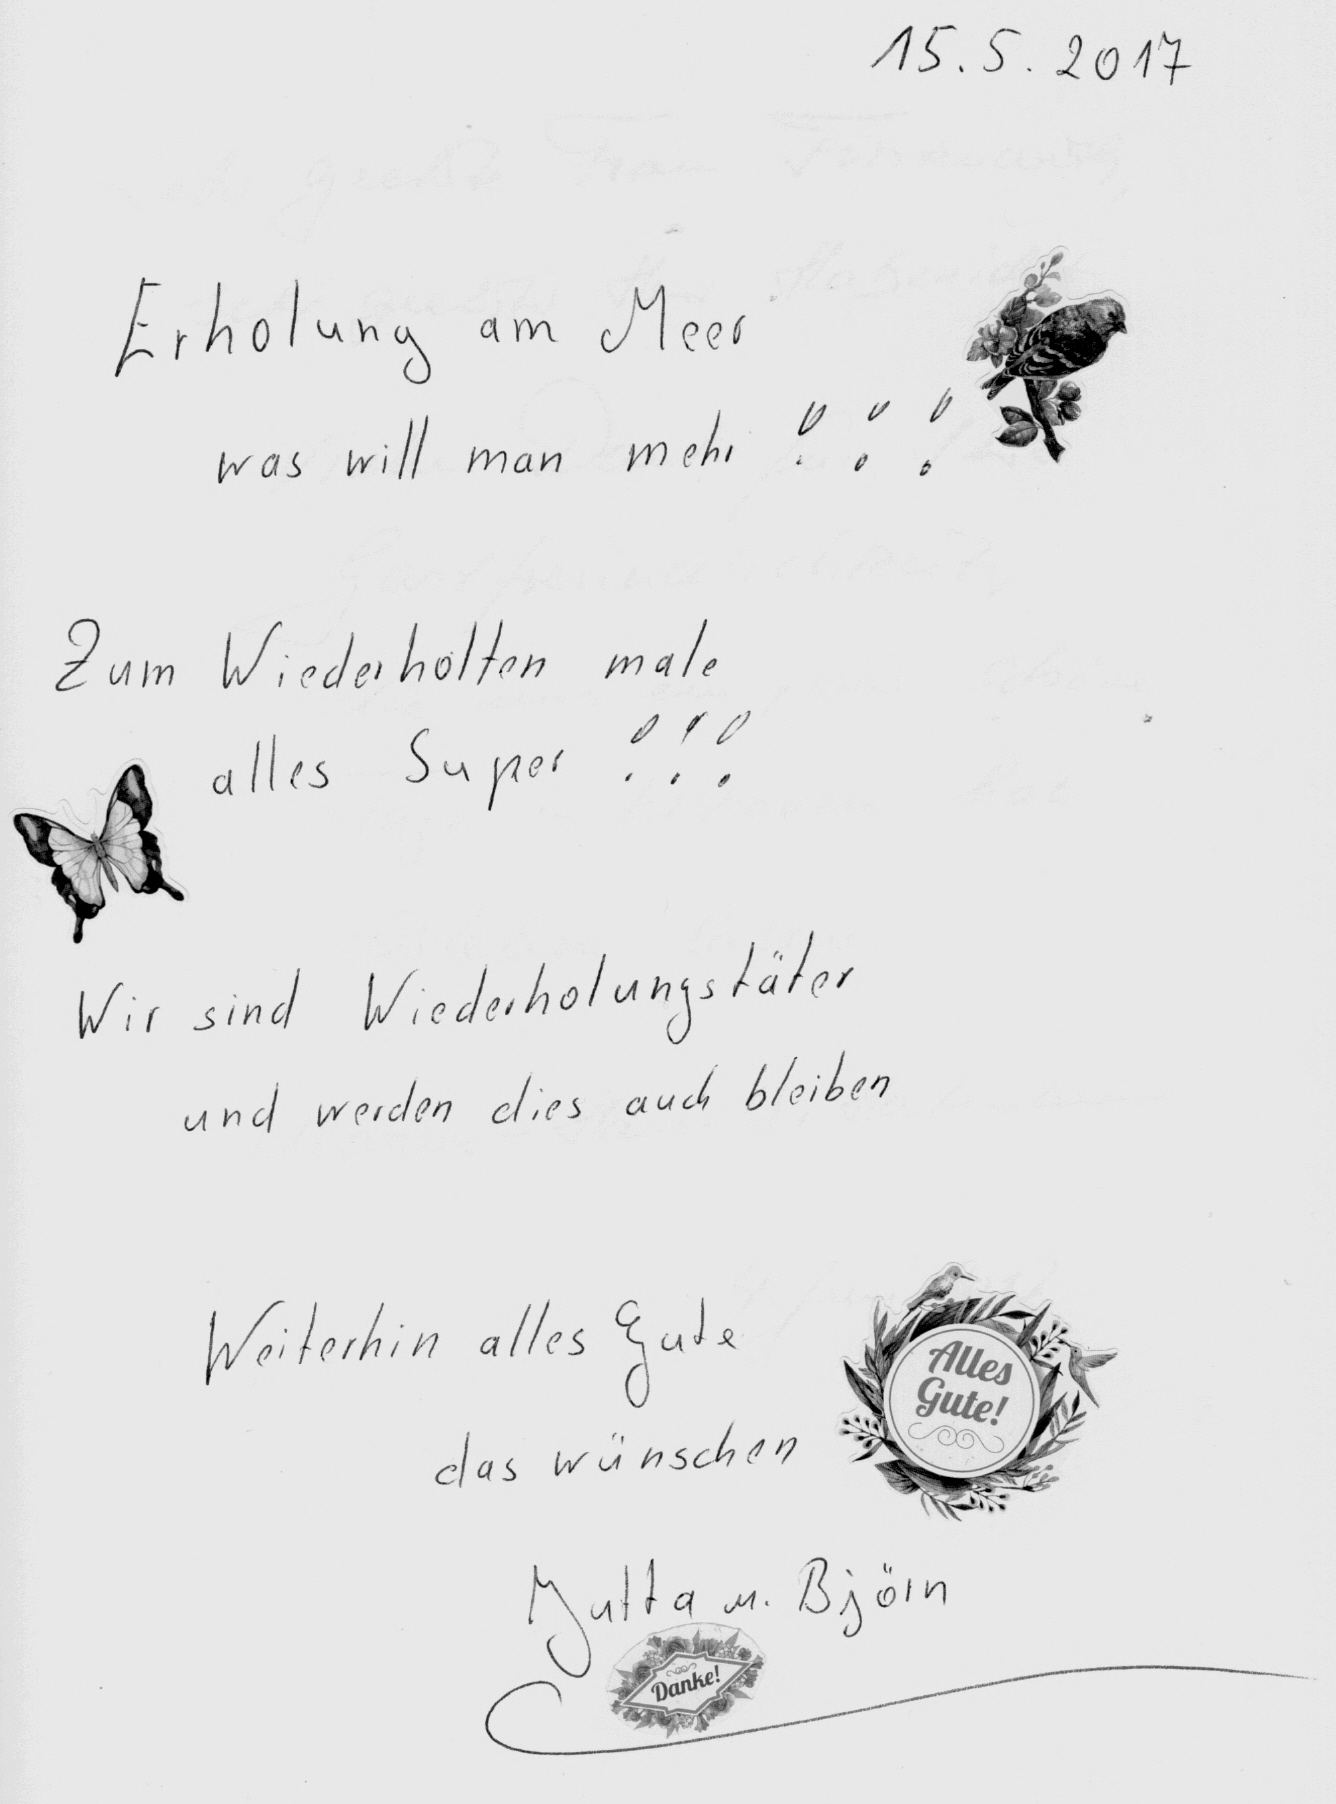 15.5.2017
Erholung am Meer
was will man mehr !!!
Zum Wiederholten male
alles Super !!!
Wir sind Wiederholungstäter
und werden dies auch bleiben
Weiterhin alles Gute
Alles
Gute!
das wünschen
Jutta u. Björn
Danke!